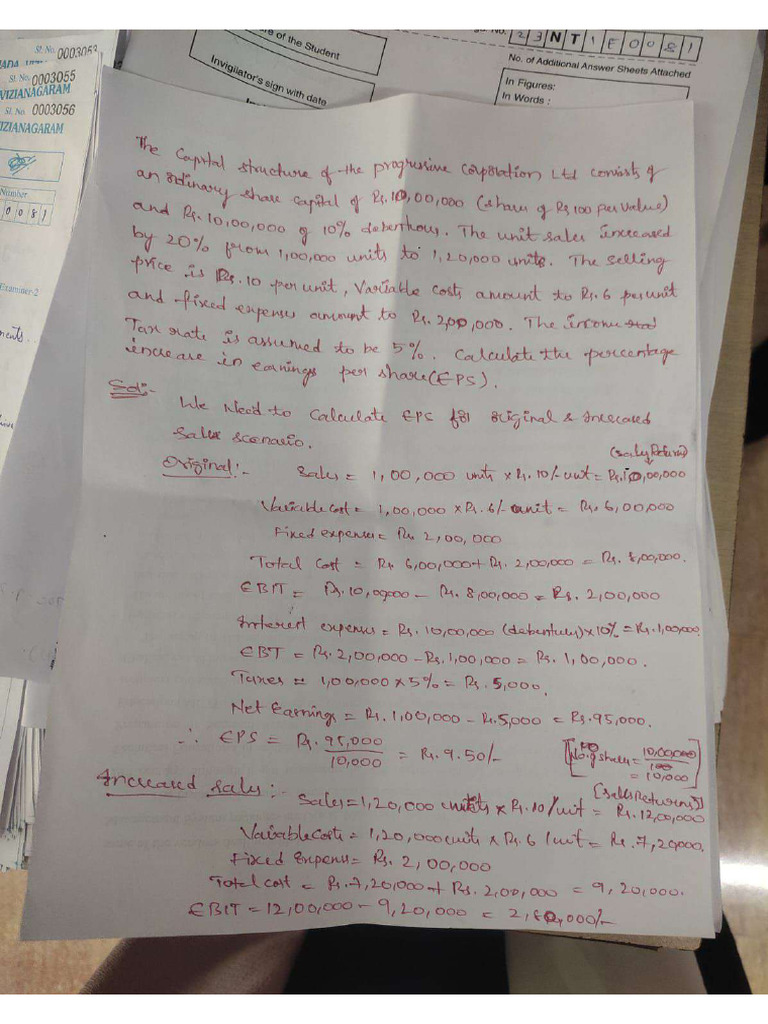 Sl. No. 0003053
Sl. No. 0003055
VIZIANAGARAM
Sl. No. 0003056
VIZIANAGARAM
Number
0 0 8 1
Examiner-2
of the Student
Invigilator's sign with date
No. 2 3 N T 1 E 0 0 8 1
No. of Additional Answer Sheets Attached
In Figures:
In Words :
The Capital structure of the progressive corporation Ltd consists of
an ordinary share capital of Rs.10,00,000 (share of Rs 100 per value)
and Rs.10,00,000 of 10% debentures. The unit sales increased
by 20% from 1,00,000 units to 1,20,000 units. The selling
price is Rs.10 per unit, Variable costs amount to Rs.6 per unit
and fixed expenses amount to Rs.2,00,000. The income
Tax rate is assumed to be 5%. Calculate the percentage
increase in earnings per share(EPS).
Sol:-
We Need to Calculate EPS for original & increased
Sales scenario.
(sales Return)
Original:- Sales = 1,00,000 units × Rs.10/-unit = Rs.10,00,000
Variable cost = 1,00,000 × Rs.6/- unit = Rs. 6,00,000
Fixed expenses = Rs 2,00,000
Total Cost = Rs 6,00,000 + Rs. 2,00,000 = Rs. 8,00,000.
EBIT = Rs.10,00,000 - Rs. 8,00,000 = Rs. 2,00,000
Interest expenses = Rs. 10,00,000 (debentures) × 10% = Rs.1,00,000.
EBT = Rs.2,00,000 - Rs.1,00,000 = Rs. 1,00,000.
Taxes = 1,00,000 × 5% = Rs.5,000.
Net Earnings = Rs.1,00,000 - Rs.5,000 = Rs.95,000.
∴ EPS = Rs. 95,000 / 10,000 = Rs.9.50/-
[No.of shares = 10,00,000 / 100
= 10,000]
Increased Sales:-
[sales Returns]
Sales = 1,20,000 units × Rs.10/unit = Rs.12,00,000
Variable Costs = 1,20,000 units × Rs.6 /unit = Rs.7,20,000.
Fixed Expenses = Rs. 2,00,000
Total cost = Rs.7,20,000 + Rs. 2,00,000 = 9,20,000.
EBIT = 12,00,000 - 9,20,000 = 2,80,000/-